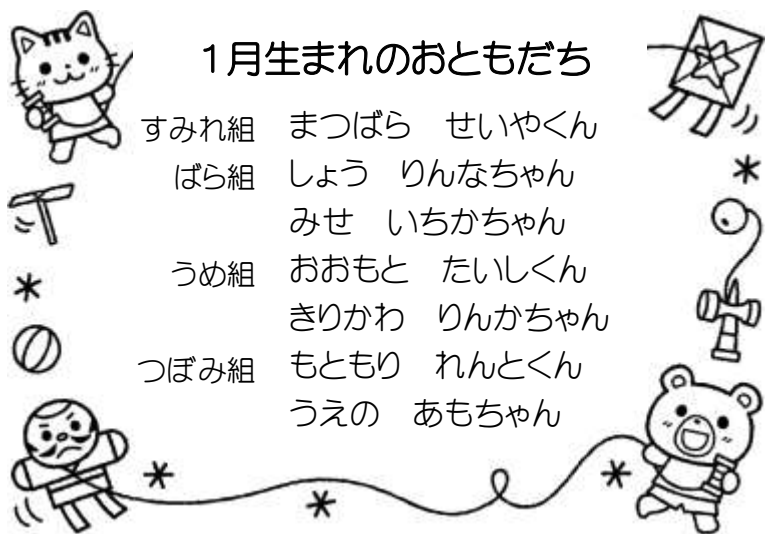 1月生まれのおともだち
すみれ組　まつばら　せいやくん
ばら組　しょう　りんなちゃん
みせ　いちかちゃん
うめ組　おおもと　たいしくん
きりかわ　りんかちゃん
つぼみ組　もともり　れんとくん
うえの　あもちゃん